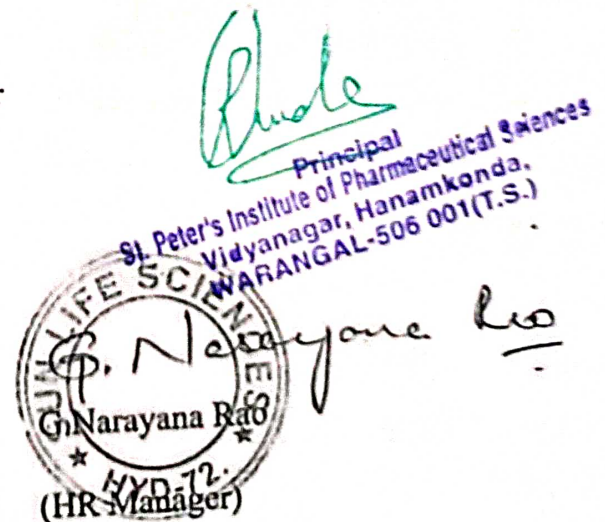 Principal
St. Peter's Institute of Pharmaceutical Sciences
Vidyanagar, Hanamkonda,
WARANGAL-506 001(T.S.)
LIFE SCIENCES
G. Narayana Rao
G.Narayana Rao
HYD-72.
(HR Manager)